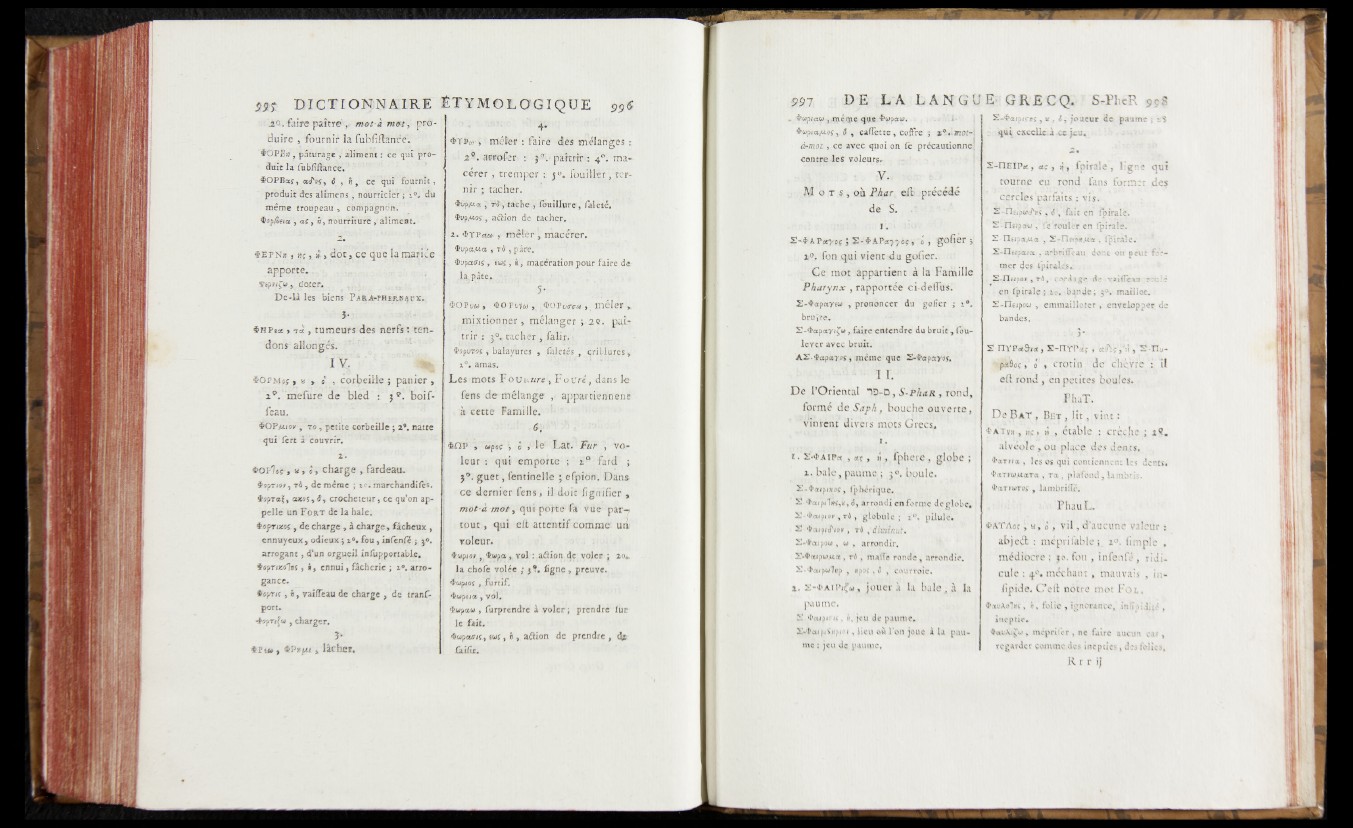 995 DICTIONNAIRE ÉTYMOLOGIQUE 996
2°. faire paître, mot à mot, pro-
duire, fournir la ſubſiſtance.
ΦΟΡΒη, pâturage, aliment : ce qui pro-
duit la ſubſiſtance.
ΦΟΡΒας, αδος, ὁ, ἡ, ce qui fournit,
produit des alimens, nourricier ; 2°. du
même troupeau, compagnon.
Φορβεια, ας, ἡ, nourriture, aliment.
2.
ΦΕΡΝη, ης, ἡ, dot, ce que la mariée
apporte.
doter.
De-là les biens PARA-PHERNAUX.
3.
ΦΗΡεα, τὰ, tumeurs des nerfs : ten-
dons allongés.
IV.
ΦΟΡΜος, ου, ὁ, corbeille ; panier,
2°. meſure de bled : 3°. boiſ-
ſeau.
ΦΟΡμιον, το, petite corbeille ; 2°. natte
qui ſert à couvrir.
2.
ΦΟΡΤος, ου, ὁ, charge, fardeau.
Φορτιον, τὸ, de même ; 2°. marchandiſes.
Φορταξ, ακος, ὁ, crocheteur, ce qu'on ap-
pelle un FORT de la hale.
Φορτικος, de charge, à charge, fâcheux,
ennuyeux, odieux ; 2°. fou, inſenſé ; 3°.
arrogant, d'un orgueil inſupportable.
Φορτικοτης, ἡ, ennui, fâcherie ; 2°. arro-
gance.
Φορτις, ἡ, vaiſſeau de charge, de tranſ-
port.
Φορτιζω, charger.
3.
ΦΡεω, ΦΡημι, lâcher.
4.
ΦΥΡω, mêler : faire des mélanges :
2°. arroſer : 3°. paîtrir : 4°. ma-
cérer, tremper : 5°. ſouiller, ter-
nir ; tacher.
Φυρμα, τὸ, tache, ſouillure, ſaleté.
Φυρμος, action de tacher.
2. ΦΥΡαω, mêler, macérer.
Φυραμα, τὸ, pâte.
Φυρασις, εως, ἡ, macération pour faire de
la pâte.
5.
ΦΟΡυω, ΦΟΡυνω, ΦΟΡυσσω, mêler,
mixtionner, mélanger ; 2°. paî-
trir : 3°. tacher, ſalir.
Φορυτος, balayures, ſaletés, criblures,
2°. amas.
Les mots FOURrure, FOURré, dans le
ſens de mélange, appartiennent
à cette Famille.
6.
ΦΩΡ, ωρος, ὁ, le Lat. Fur, vo-
leur : qui emporte : 2° fard ;
3°. guet, ſentinelle ; eſpion. Dans
ce dernier ſens, il doit ſignifier,
mot-à mot, qui porte ſa vue par-
tout, qui eſt attentif comme un
voleur.
Φωριον, Φωρα, vol : action de voler ; 2°.
la choſe volée ; 3°. ſigne, preuve.
Φωριος, furtif.
Φωρεια, vol.
Φωραω, ſurprendre à voler ; prendre ſur
le fait.
Φωρασις, εως, ἡ, action de prendre, de
ſaiſir.
997 DE LA LANGUE GRECQ. S-PheR 998
Φωριαω, même que Φωραω.
Φωριαμος, ὁ, caſſette, coffre ; 2°. mot-
à-mot, ce avec quoi on ſe précautionne
contre les voleurs.
V.
MOTS, où Phar eſt précédé
de S.
I.
Σ-ΦΑΡαγος ; Σ-ΦΑΡαγγος, ὁ, goſier ;
2°. ſon qui vient du goſier.
Ce mot appartient à la Famille
Pharynx, rapportée ci-deſſus.
Σ-Φαραγεω, prononcer du goſier ; 2°.
bruire.
Σ-Φαραγιζω, faire entendre du bruit, ſou-
lever avec bruit.
ΑΣ-Φαραγος, même que Σ-Φαραγος.
II.
De l'Oriental ס-פר, S-PhaR, rond,
formé de Saph, bouche ouverte,
vinrent divers mots Grecs.
1.
1. Σ-ΦΑΙΡα, ας, ἡ, ſphere, globe ;
2. bale, paume ; 3°. boule.
Σ-Φαιρικος, ſphérique.
Σ-Φαιριτης, ου, ὁ, arrondi en forme de globe.
Σ-Φαιριον, τὸ, globule ; 2°. pilule.
Σ-Φαιριδιον, τὸ, diminut.
Σ-Φαιροω, ω, arrondir.
Σ-Φαιρωμα, τὸ, maſſe ronde, arrondie.
Σ-Φαιρωτηρ, ηρος, ὁ, courroie.
2. Σ-ΦΑΙΡιζω, jouer à la bale, à la
paume.
Σ-Φαιρισις, ἡ, jeu de paume.
lieu où l'on joue à la pau-
me : jeu de paume.
joueur de paume ; 2°
qui excelle à ce jeu.
2.
Σ-ΠΕΙΡα, ας, ἡ, ſpirale, ligne qui
tourne en rond ſans former des
cercles parfaits : vis.
fait en ſpirale.
Σ-Πειραω, ſe rouler en ſpirale.
Σ-Πειραμα, ſpirale.
arbriſſeau dont on peut for-
mer des ſpirales.
cordage de vaiſſeau roulé
en ſpirale ; 2°. bande ; 3°. maillot.
Σ-Πειροω, emmailloter, envelopper de
bandes.
3.
Σ-ΠΥΡαθια, Σ-ΠΥΡας, αδος, ἡ, Σ-Πυ-
ραθος, ὁ, crotin de chèvre : il
eſt rond, en petites boules.
PhaT.
De BAT, BET, lit, vint :
ΦΑΤνη, ης, ἡ, étable : crèche ; 2°.
alvéole, ou place des dents.
Φατνια, les os qui contiennent les dents.
Φατνωματα, τα, plafond, lambris.
Φατνωτος, lambriſſé.
PhauL.
ΦΑΥΛος, ου, ὁ, vil, d'aucune valeur :
abject : mépriſable ; 2°. ſimple,
médiocre : 3°. fou, inſenſé, ridi-
cule : 4°. méchant, mauvais, in-
ſipide. C'eſt notre mot FOL.
Φαυλοτης, ἡ, folie, ignorance, inſipidité,
ineptie.
Φαυλιζω, mépriſer, ne faire aucun cas,
regarder comme des inepties, des folies.
R r r ij